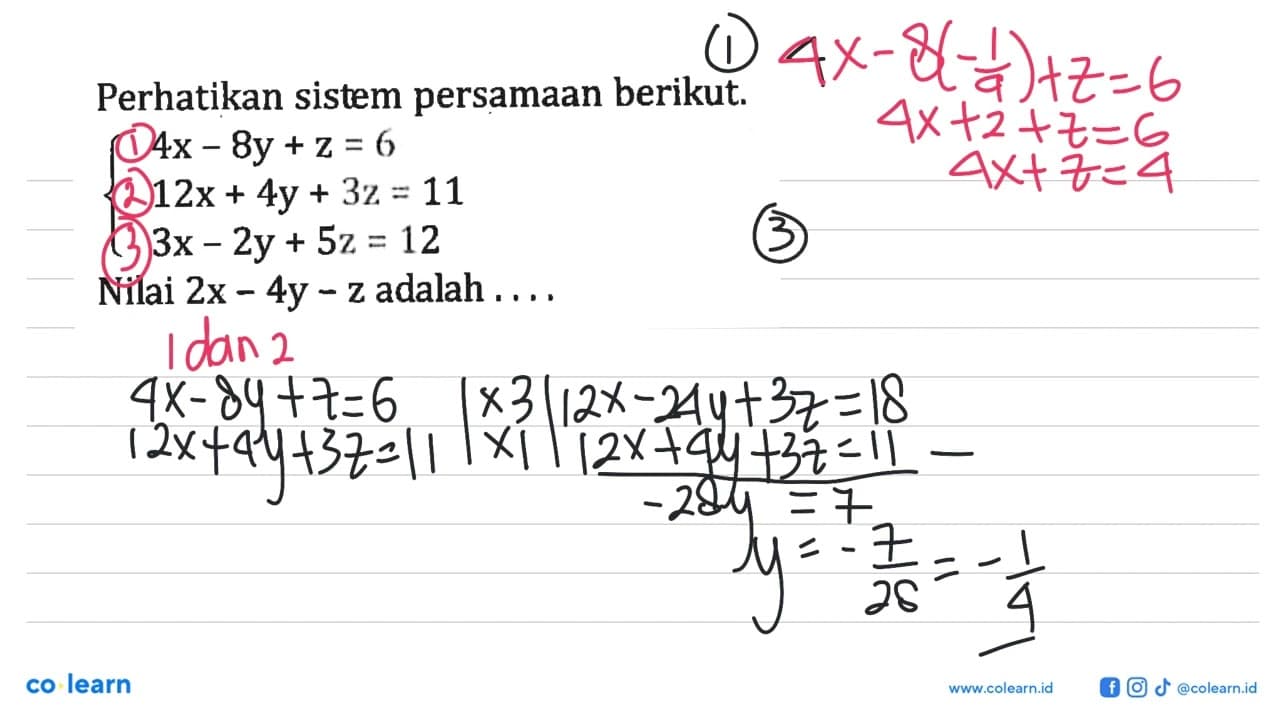 Perhatikan sistem persamaan berikut.
① 4x – 8y + z = 6
② 12x + 4y + 3z = 11
③ 3x – 2y + 5z = 12
Nilai 2x – 4y – z adalah . . . .
1 dan 2
4x - 8y + z = 6 | x3 | 12x - 24y + 3z = 18
12x + 4y + 3z = 11 | x1 | 12x + 4y + 3z = 11 –
-28y = 7
y = - 7/28 = - 1/4
① 4x - 8(-1/4) + z = 6
4x + 2 + z = 6
4x + z = 4
③
co learn
www.colearn.id
@colearn.id